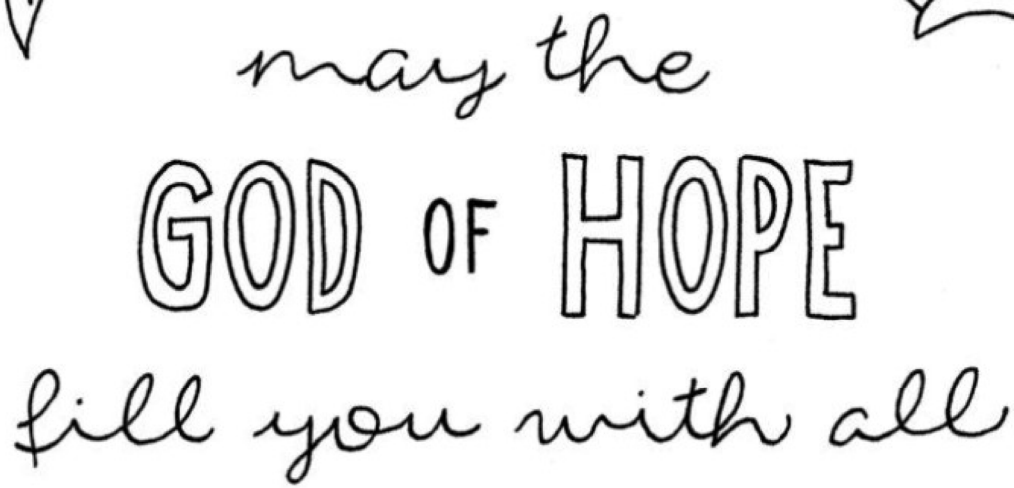 may the
GOD OF HOPE
fill you with all